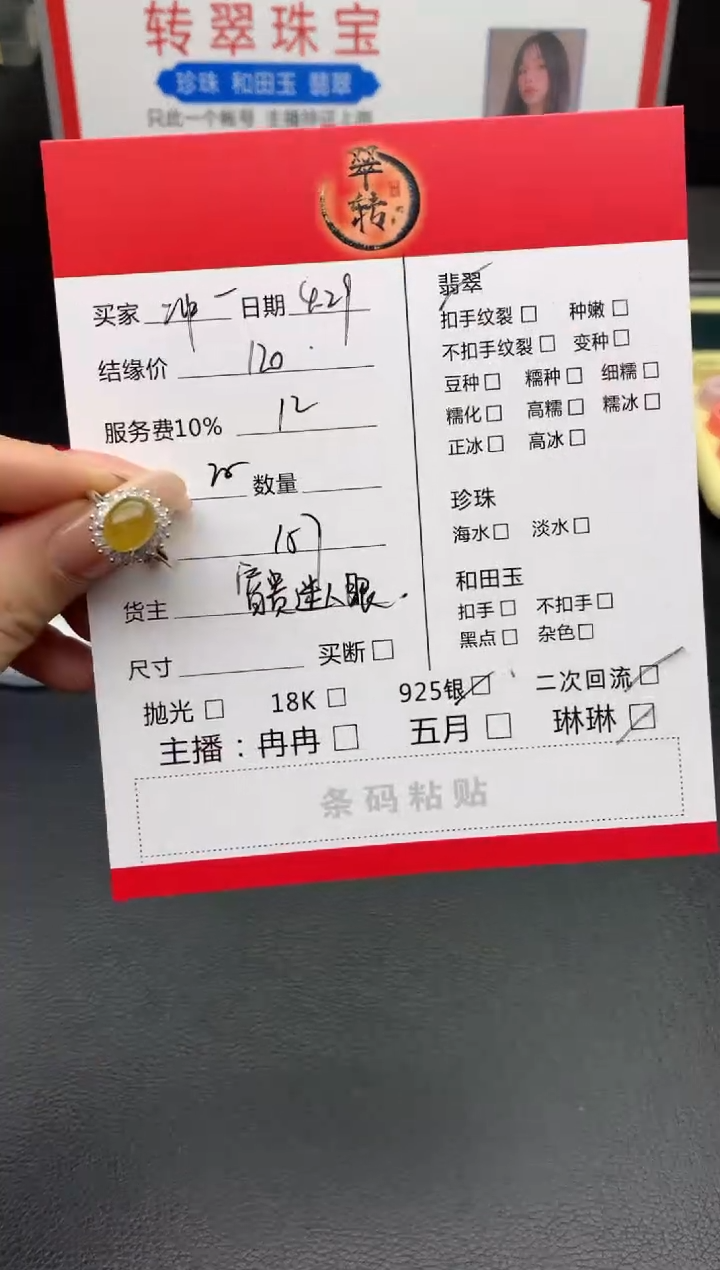 转翠珠宝
珍珠 和田玉 翡翠
只此一个帐号
翠转
买家 冲一 日期 4.29
结缘价 120
服务费10% 12
数量
157
货主 富贵迷人眼.
尺寸 买断
抛光 18K 925银 二次回流
主播：冉冉 五月 琳琳
条码粘贴
翡翠
扣手纹裂 种嫩
不扣手纹裂 变种
豆种 糯种 细糯
糯化 高糯 糯冰
正冰 高冰
珍珠
海水 淡水
和田玉
扣手 不扣手
黑点 杂色